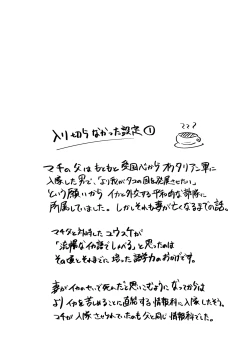 入り切らなかった設定①
マチの父はもともと愛国心からオクタリアン軍に
入隊した男で、「より我がタコの国を発展させたい」
という願いからイカと外交する平和的な部隊に
所属していました。しかしそれも妻が亡くなるまでの話。
マチ父と対峙したユウスケが
「流暢なイカ語でしゃべる」と思ったのは
その頃とそれまでに培った語学力のおかげです。
妻がイカのせいで死んだと思いこむようになってからは
よりイカを苦しめることに直結する情報科に入隊したそう。
マチが入隊させられていたのも父と同じ情報科でした。